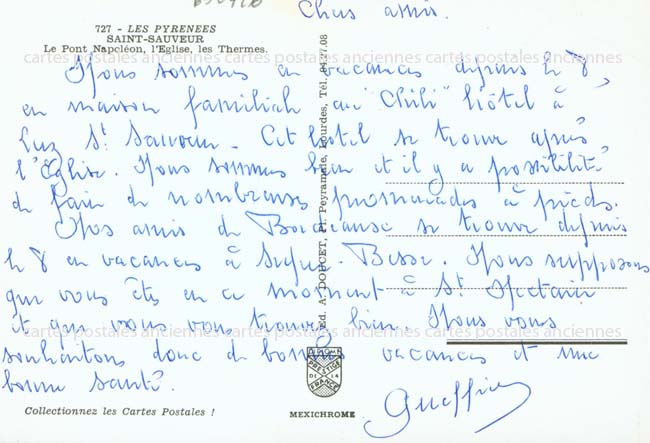 727 - LES PYRENEES
SAINT-SAUVEUR
Le Pont Napoléon, l'Eglise, les Thermes.
Chers amis.
Nous sommes en vacances depuis le 8,
en maison familiale au "Chili" hôtel à
Luz St Sauveur. Cet hôtel se trouve après
l'Eglise. Nous sommes bien et il y a possibilité
de faire de nombreuses promenades à pieds.
Nos amis de Bordeaux se trouve depuis
le 8 en vacances à Super-Besse. Nous supposons
que vous êtes en ce moment à St Nectaire
et que vous vous trouvez bien. Nous vous
souhaitons donc de bonnes vacances et une
bonne santé.
Ed. A. DOUCET, Pl. Peyramale, Lourdes, Tél. 94.27.08
EDITION
PRESTIGE
DE LA
FRANCE
Collectionnez les Cartes Postales !
MEXICHROME
cartes postales anciennes cartes postales anciennes cartes postales anciennes
cartes postales anciennes cartes postales anciennes cartes postales anciennes